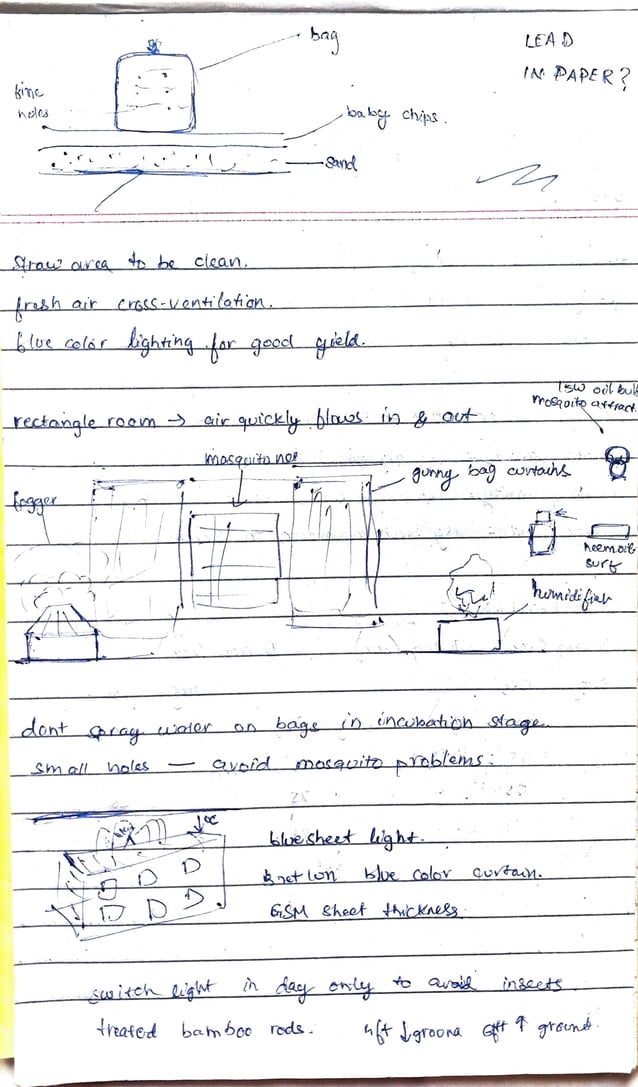 bag
LEAD
IN PAPER?
fine
holes
baby chips.
sand
straw area to be clean.
fresh air cross-ventilation.
blue color lighting for good yield.
15W oil bulb
mosquito attract.
rectangle room → air quickly blows in & out
mosquito net
gunny bag curtains
fogger
neem oil
surf
humidifier
dont spray water on bags in incubation stage
small holes — avoid mosquito problems.
blue sheet light.
blue color curtain.
GSM sheet thickness.
switch light in day only to avoid insects
treated bamboo rods. 4ft ↓ ground 6ft ↑ ground.